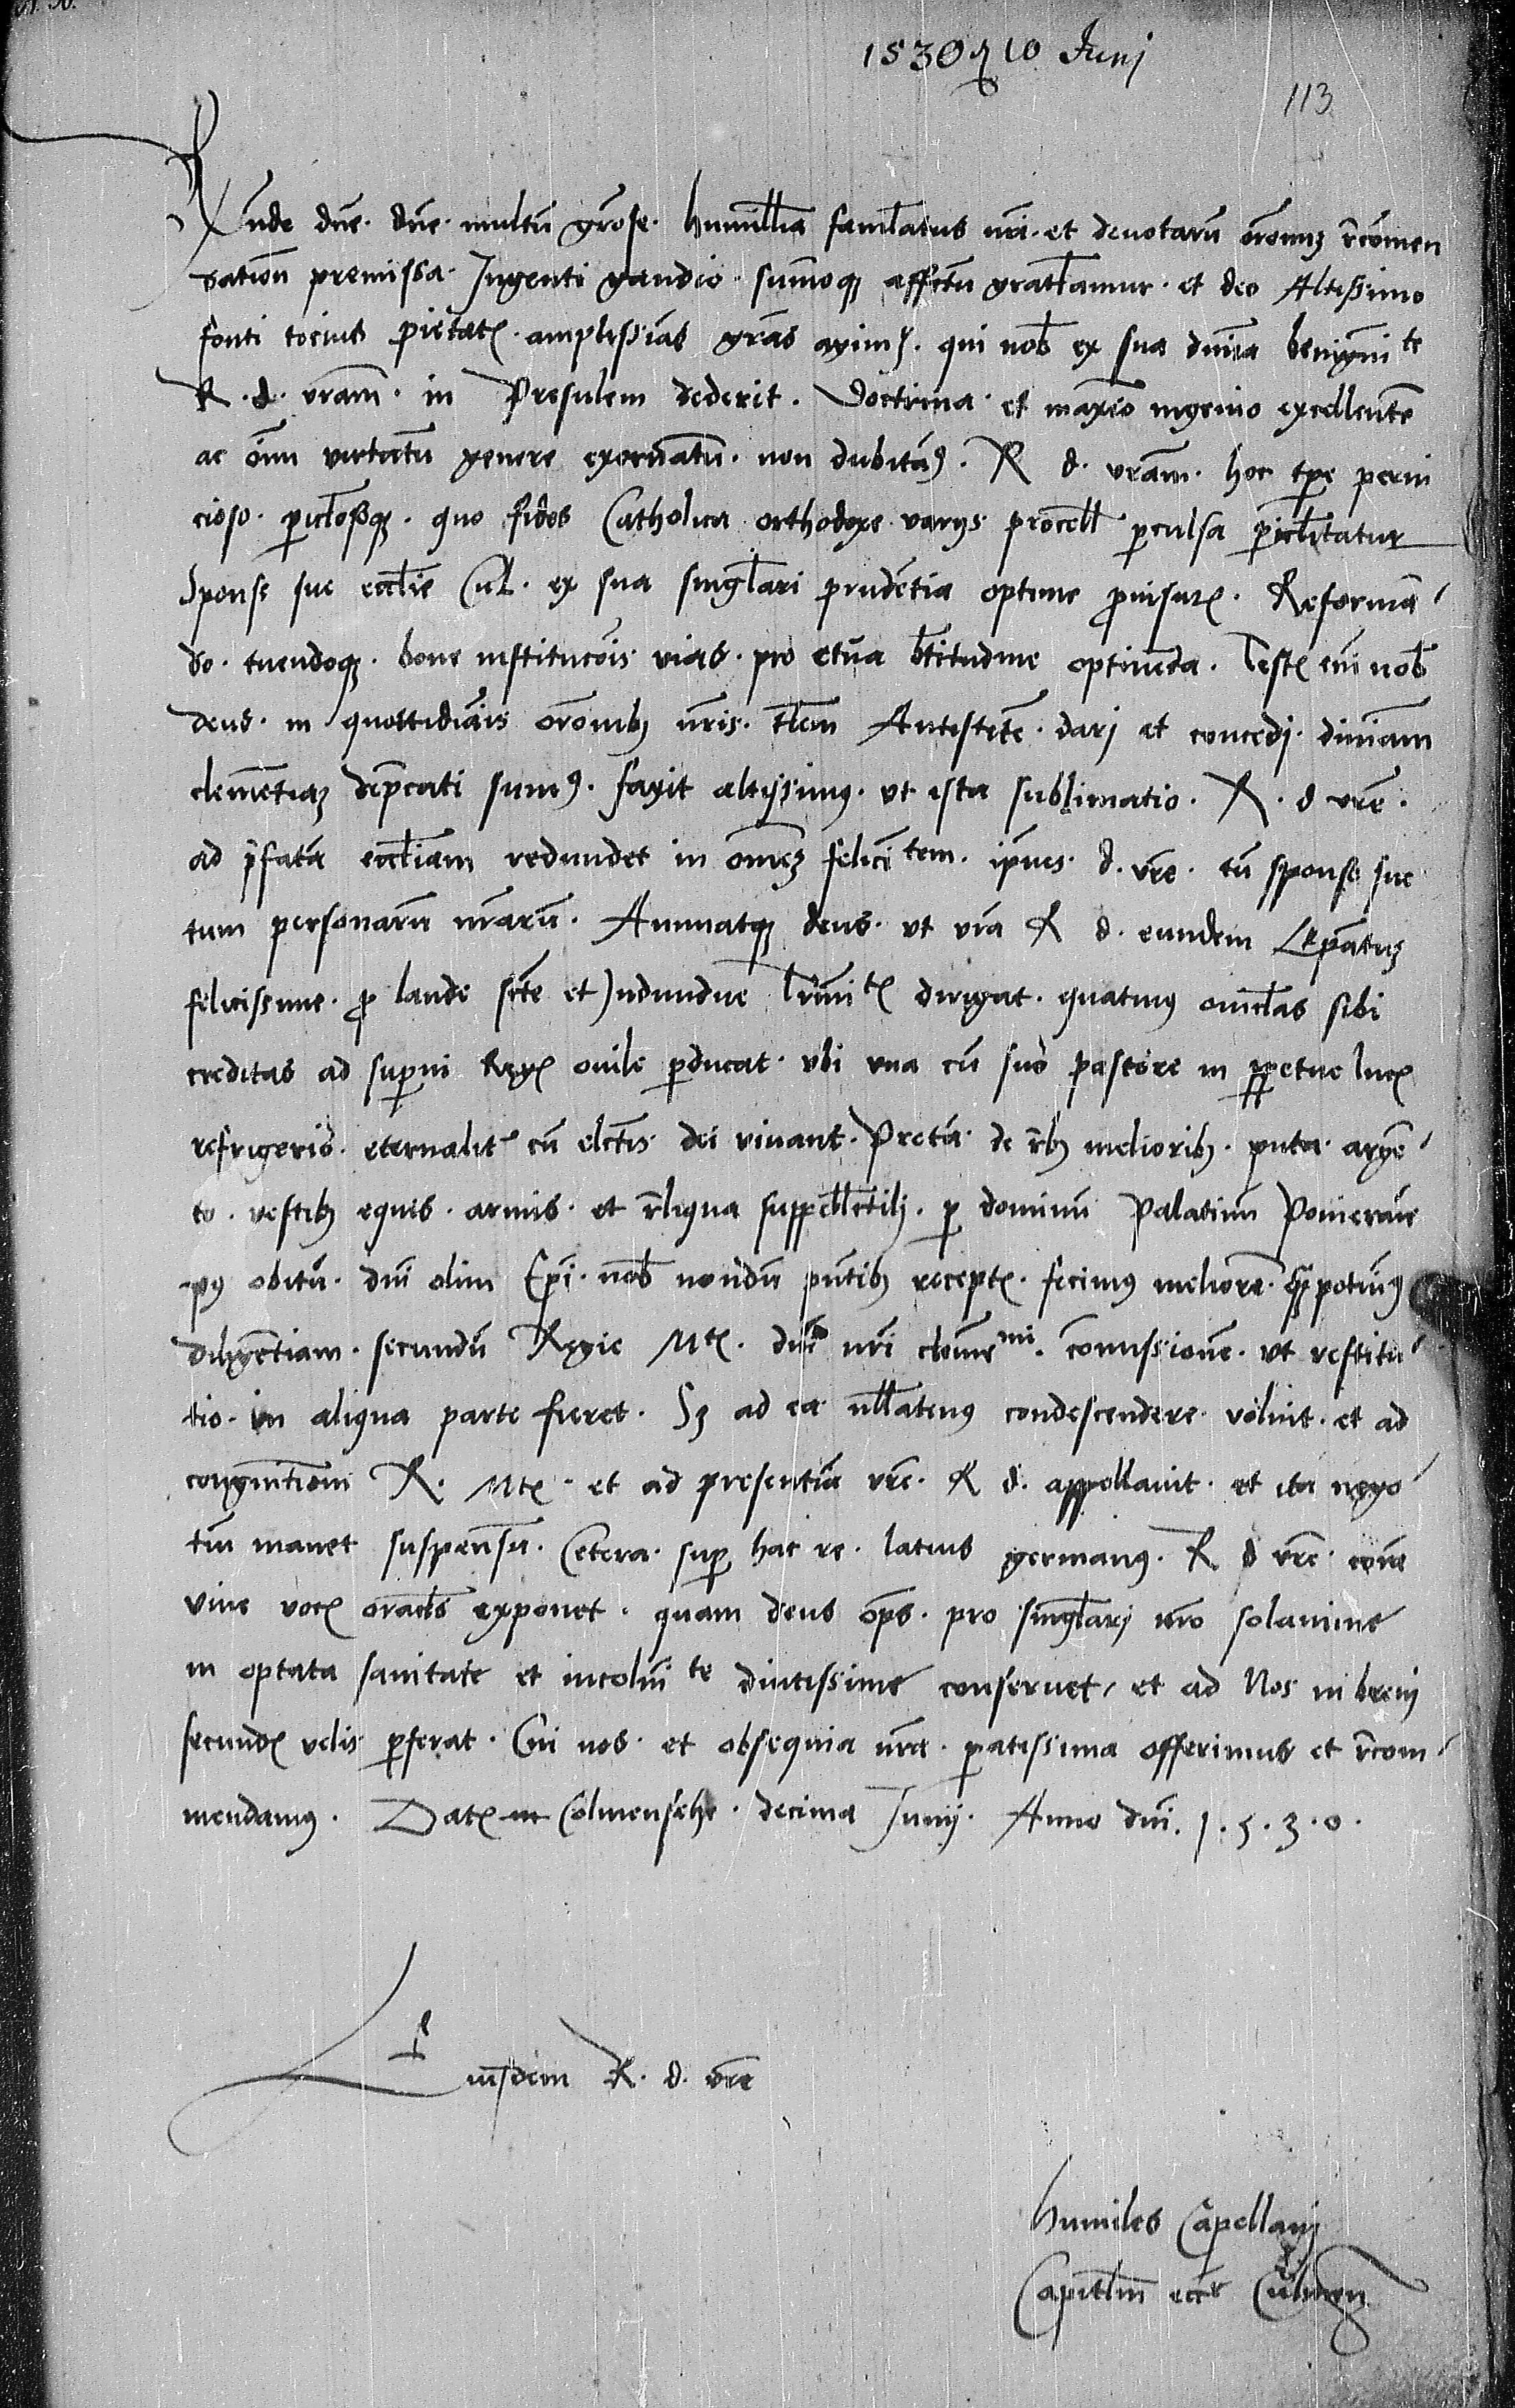 1530 10 Junj
113
Rnde dne. dne multu grose. humillia famlatus nri. et devotaru oronuz rcomen
dation premissa. Ingenti gaudio sumoq affectu gratlamur. et deo Altissimo
fonti tocius pietat amplissias gras agim. qui nob ex sua diuina benignite
R. d. vram. in Presulem dederit. Doctrina et maxio ingenio excellente
ac omi virtutu genere exornatum. non dubitam. R d. vram. hoc tpe perni
cioso. piclosoq. quo fides Catholica orthodoxe varijs procell pculsa piclitatur
Sponse sue ecclie Cul. ex sua singlari prudentia optime prouisur. Reforma
do. tuendoq. bone institucois vias. pro etna btitudine optinenda. Test eni nob
deus. in quottidiais oronib nris. tlem Antistite. darj et concedj. diuinam
clementiaz depcati sumus. faxit altissimus. vt ista sublimatio. R. d vre.
ad pfata eccliam redundet in omez felicitem. ipius d. vre. tu sponse sue
tum personaru nraru. Annuatq deus. vt vra R d. eundem Epatuz
felicissime. p laude scte et Indiuidue Trinit dirigat. quatinus ouiclas sibi
creditas ad superni Reg ouile pducat. vbi vna cu suo pastore in ppetue luc
refrigerio. eternalit cu electis dei viuant. Preta de rb meliorib. puta argen
to. vestib equis. armis. et rliqua suppellectilj. p dominu Palatinu Pomeranie
pus obitu. dni olim Epi. nob nondu pntib recept. fecimus meliore qua potuimus
diligentiam. secundu Regie Mt. dni nri cleme mi. comissione. vt restitu
tio in aliqua parte fieret. Sz ad ea nllatenus condescendere voluit. et ad
congnitiom R. Mt et ad presentia vre. R d. appellauit. et ita nego
tiu manet suspensu. Cetera. sup hac re. latius germanus. R d vre
viue voc oraclo exponet. quam deus ops. pro singlarj nro solamine
in optata sanitate et incolumite diutissime conseruet, et ad Nos in breuj
secund velis pferat. Cui nos et obsequia nra. paratissima offerimus et rcom
mendamus. Dat in Colmensehe. decima Junij. Anno dni. 1.5.3.0.
Eiusdem R. d. vre
humiles Capellanj
Capitlm eccle Culmen